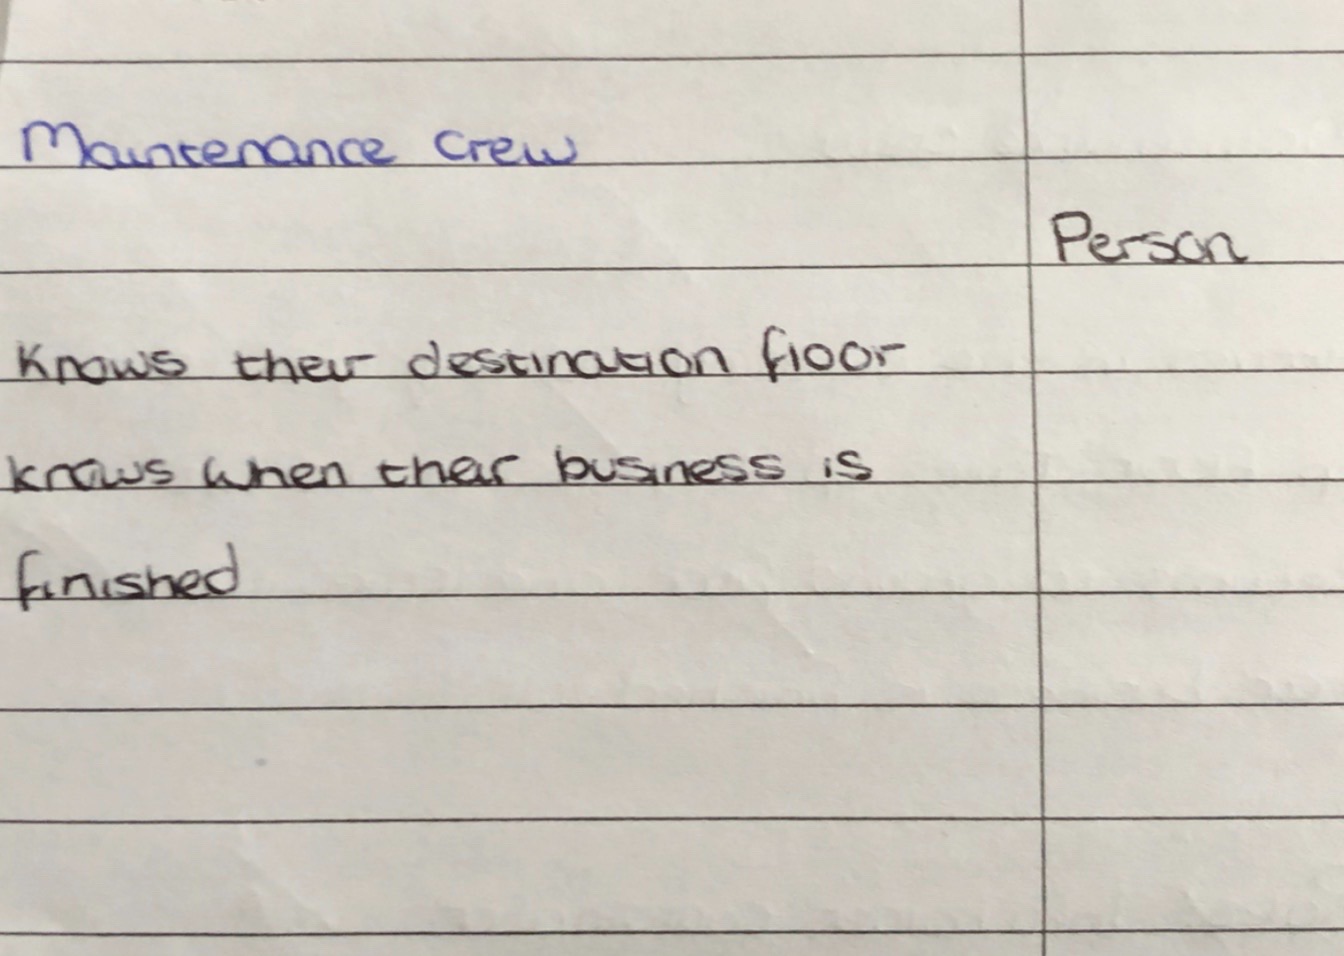 Maintenance Crew
Person
Knows their destination floor
knows when their business is
finished